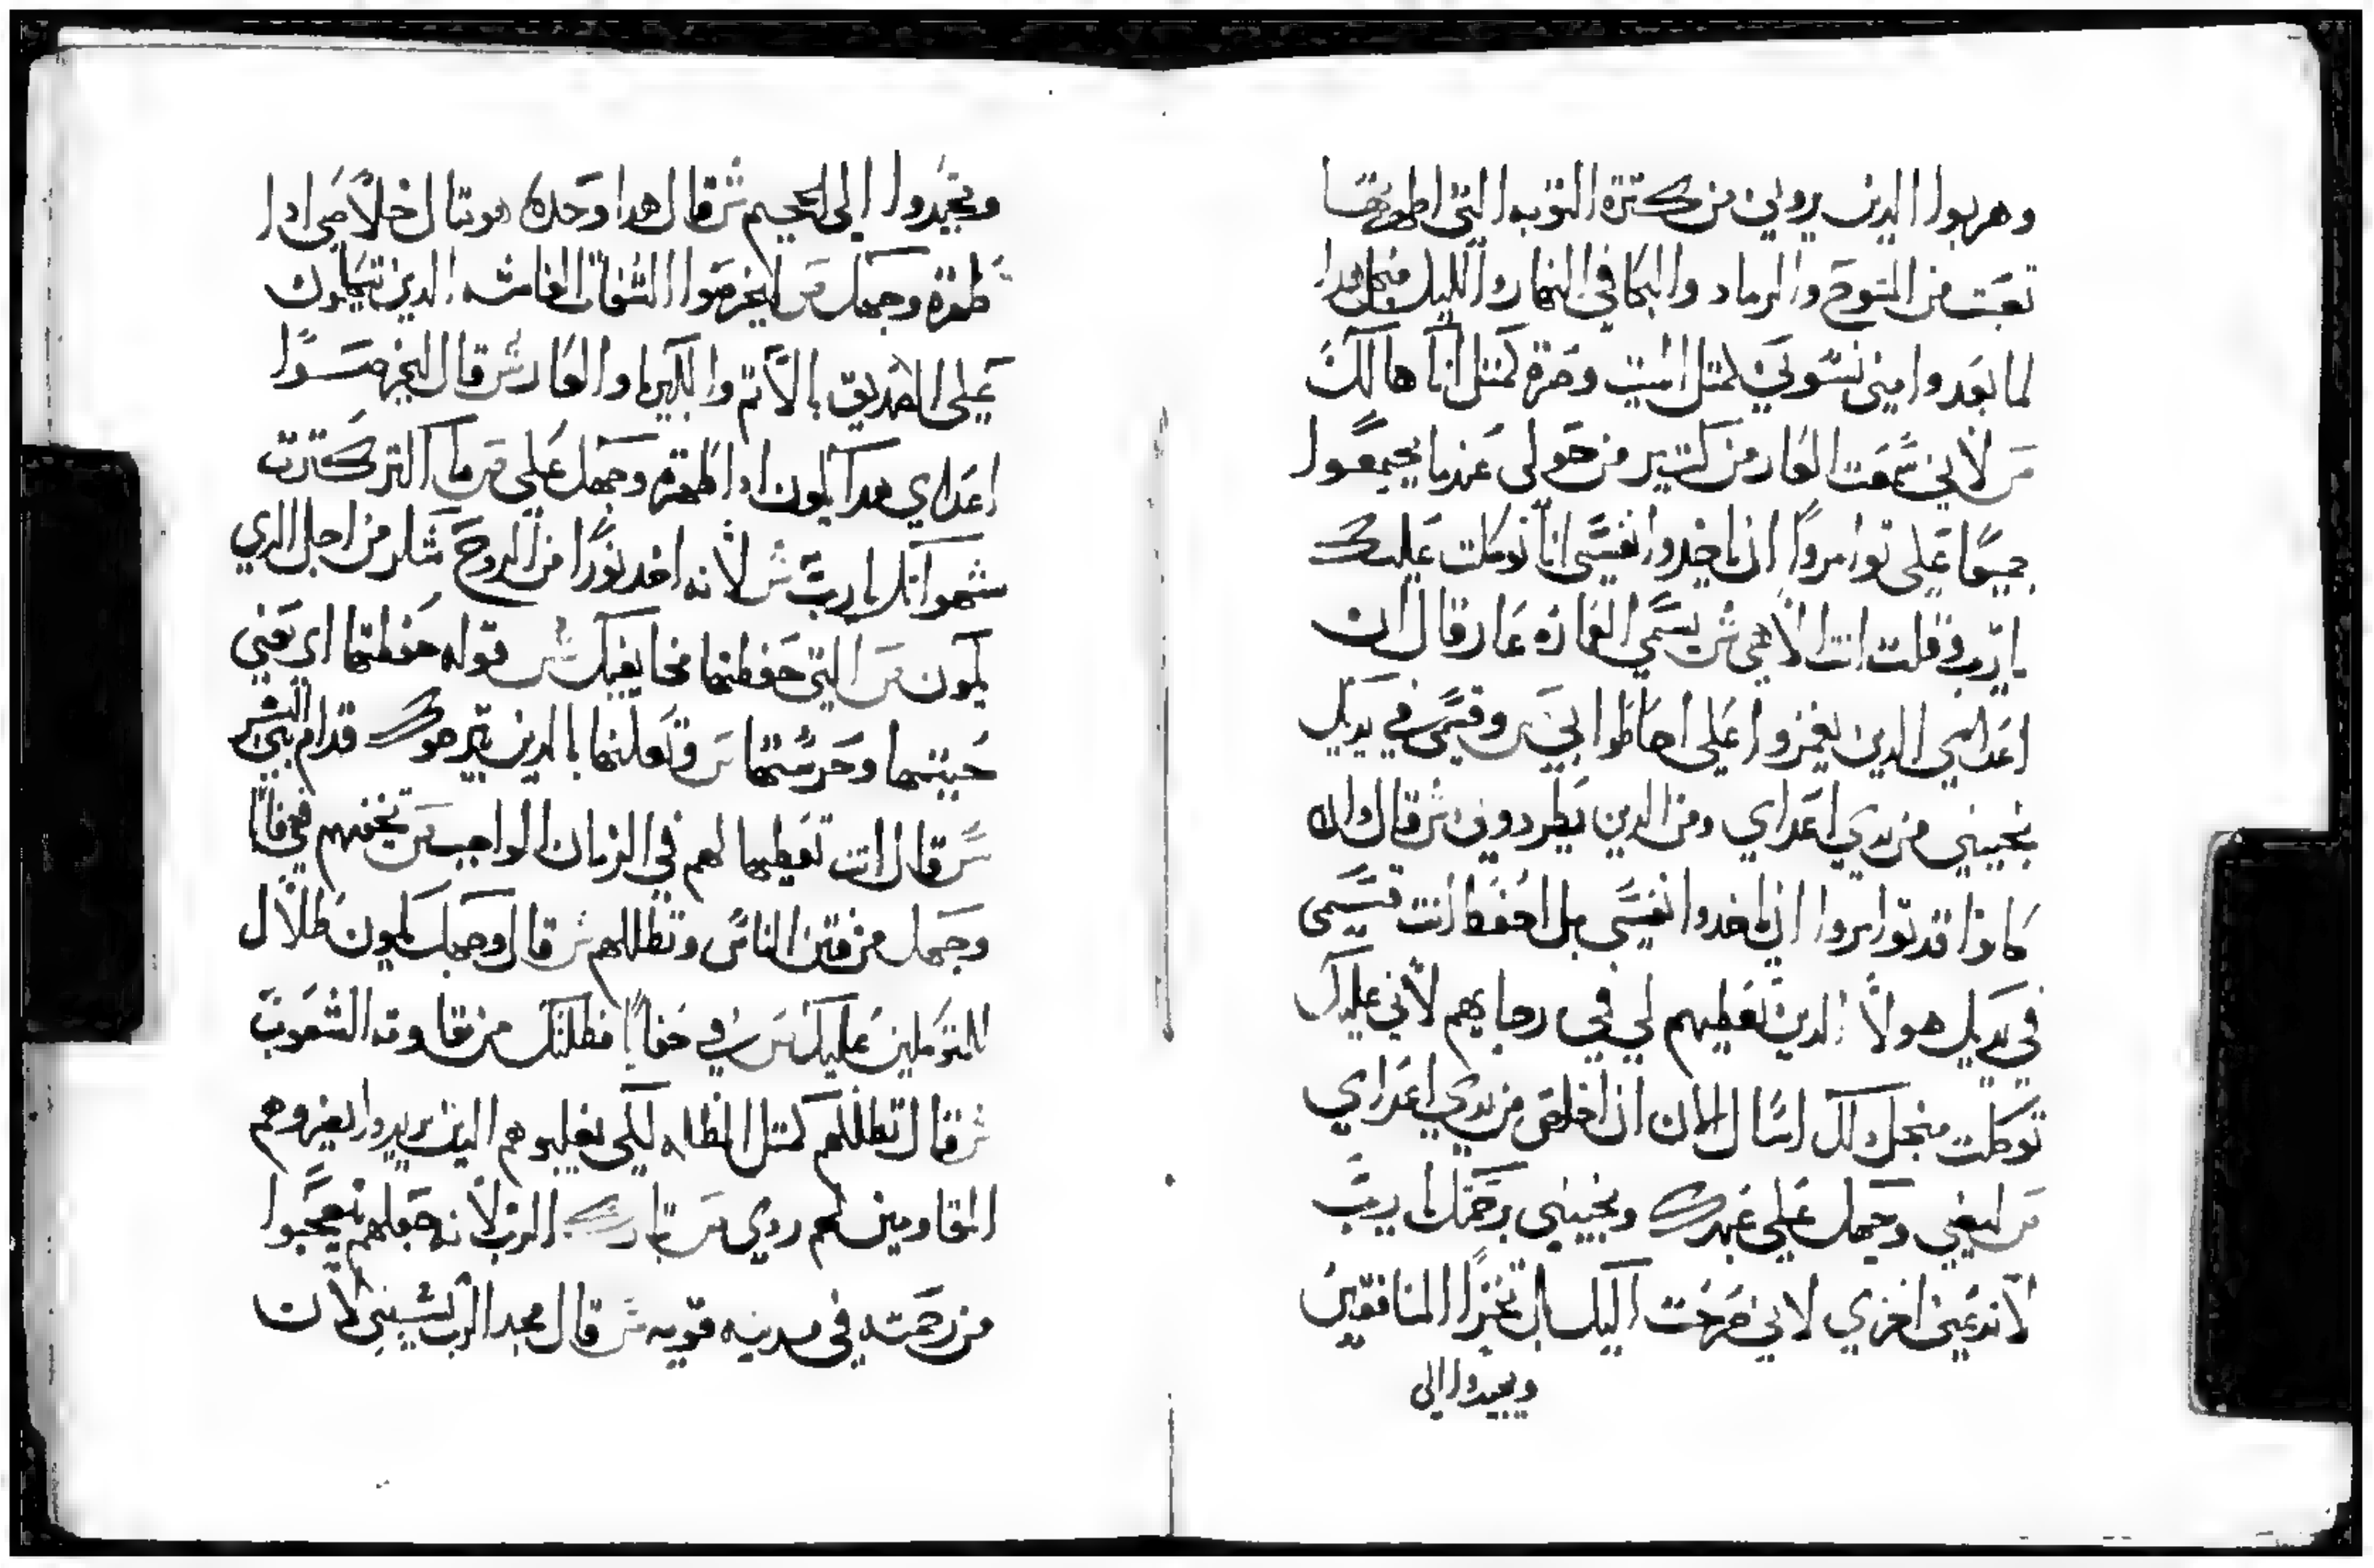 وهربوا الدين يروني من كترة التوبه التي اظهرتها
تعبت من النوح والرماد والبكا في النهار والليل منجل هدا
لما بعدوا مني نسوني كمتل الميت وصرة كمتل انا هالك
مرن لاني سمعت العار من كتير من حولي عندما يجتمعوا
جميعًا علي توامروا ان ياخدوا نفسي انا توكلت عليك
يارب وقلت انت الاهي ش يسمي العازه عار قال ان
اعداي الدين يغمزوا علي احاطوا بي مرن وقسمي في يديك
نجيني من يدي اعداي ومن الدين يطردوني ش قال وان
كانوا قد توامروا ان ياخدوا نفسي بل احفظ انت قسمي
في يديك هولا الدين تعطيهم لي في رجايهم لاني عليك
توكلت منجل دلك اسال الان ان اخلص من يدي اعداي
مرن ليضي وجهك علي عبدك ونجيني برحمتك يارب
لا تدعني اخزي لاني صرخت اليك بل تخزا المنافقين
ويحيدوا الي
ويحيدوا الي الجحيم ش قال هدا وحده هو بتال خلاصي ادا
ظهرة وجهك مرن ليخرصوا الشفاة الغاشه الدين يتكلمون
علي الصديق بالاتم والكبريا والعار ش قال ليخرصوا
اعداي هدا يكون ادا اظهرة وجهك علي مرن ما اكتر كترت
شهواتك يارب ش لانه اخد نورًا من الروح شكر من اجل الدي
يكون مرن التي حفظتها لخايفيك ش قوله حفظتها اي يعني
خبيتها وحرستها مرن وتعلنها بالدين يترجوك قدام بني البشر
ش قال انت تعطيها لهم في الزمان الواجب مرن تخفيهم في خفا
وجهك من فتن الناس وتظللهم ش قال وجهك يكون ظلال
للمتوكلين عليك مرن في خفا مظلتك من مقاومة الشعوب
ش قال تظللهم كمتل المظله لكي يغلبوهم الدين يريدوا يغيروهم
المقاومين لهم ردي مرن تبارك الرب لانه جعلهم يتعجبوا
من رحمته في مدينه قويه ش قال مجدا الرب يشبني لان